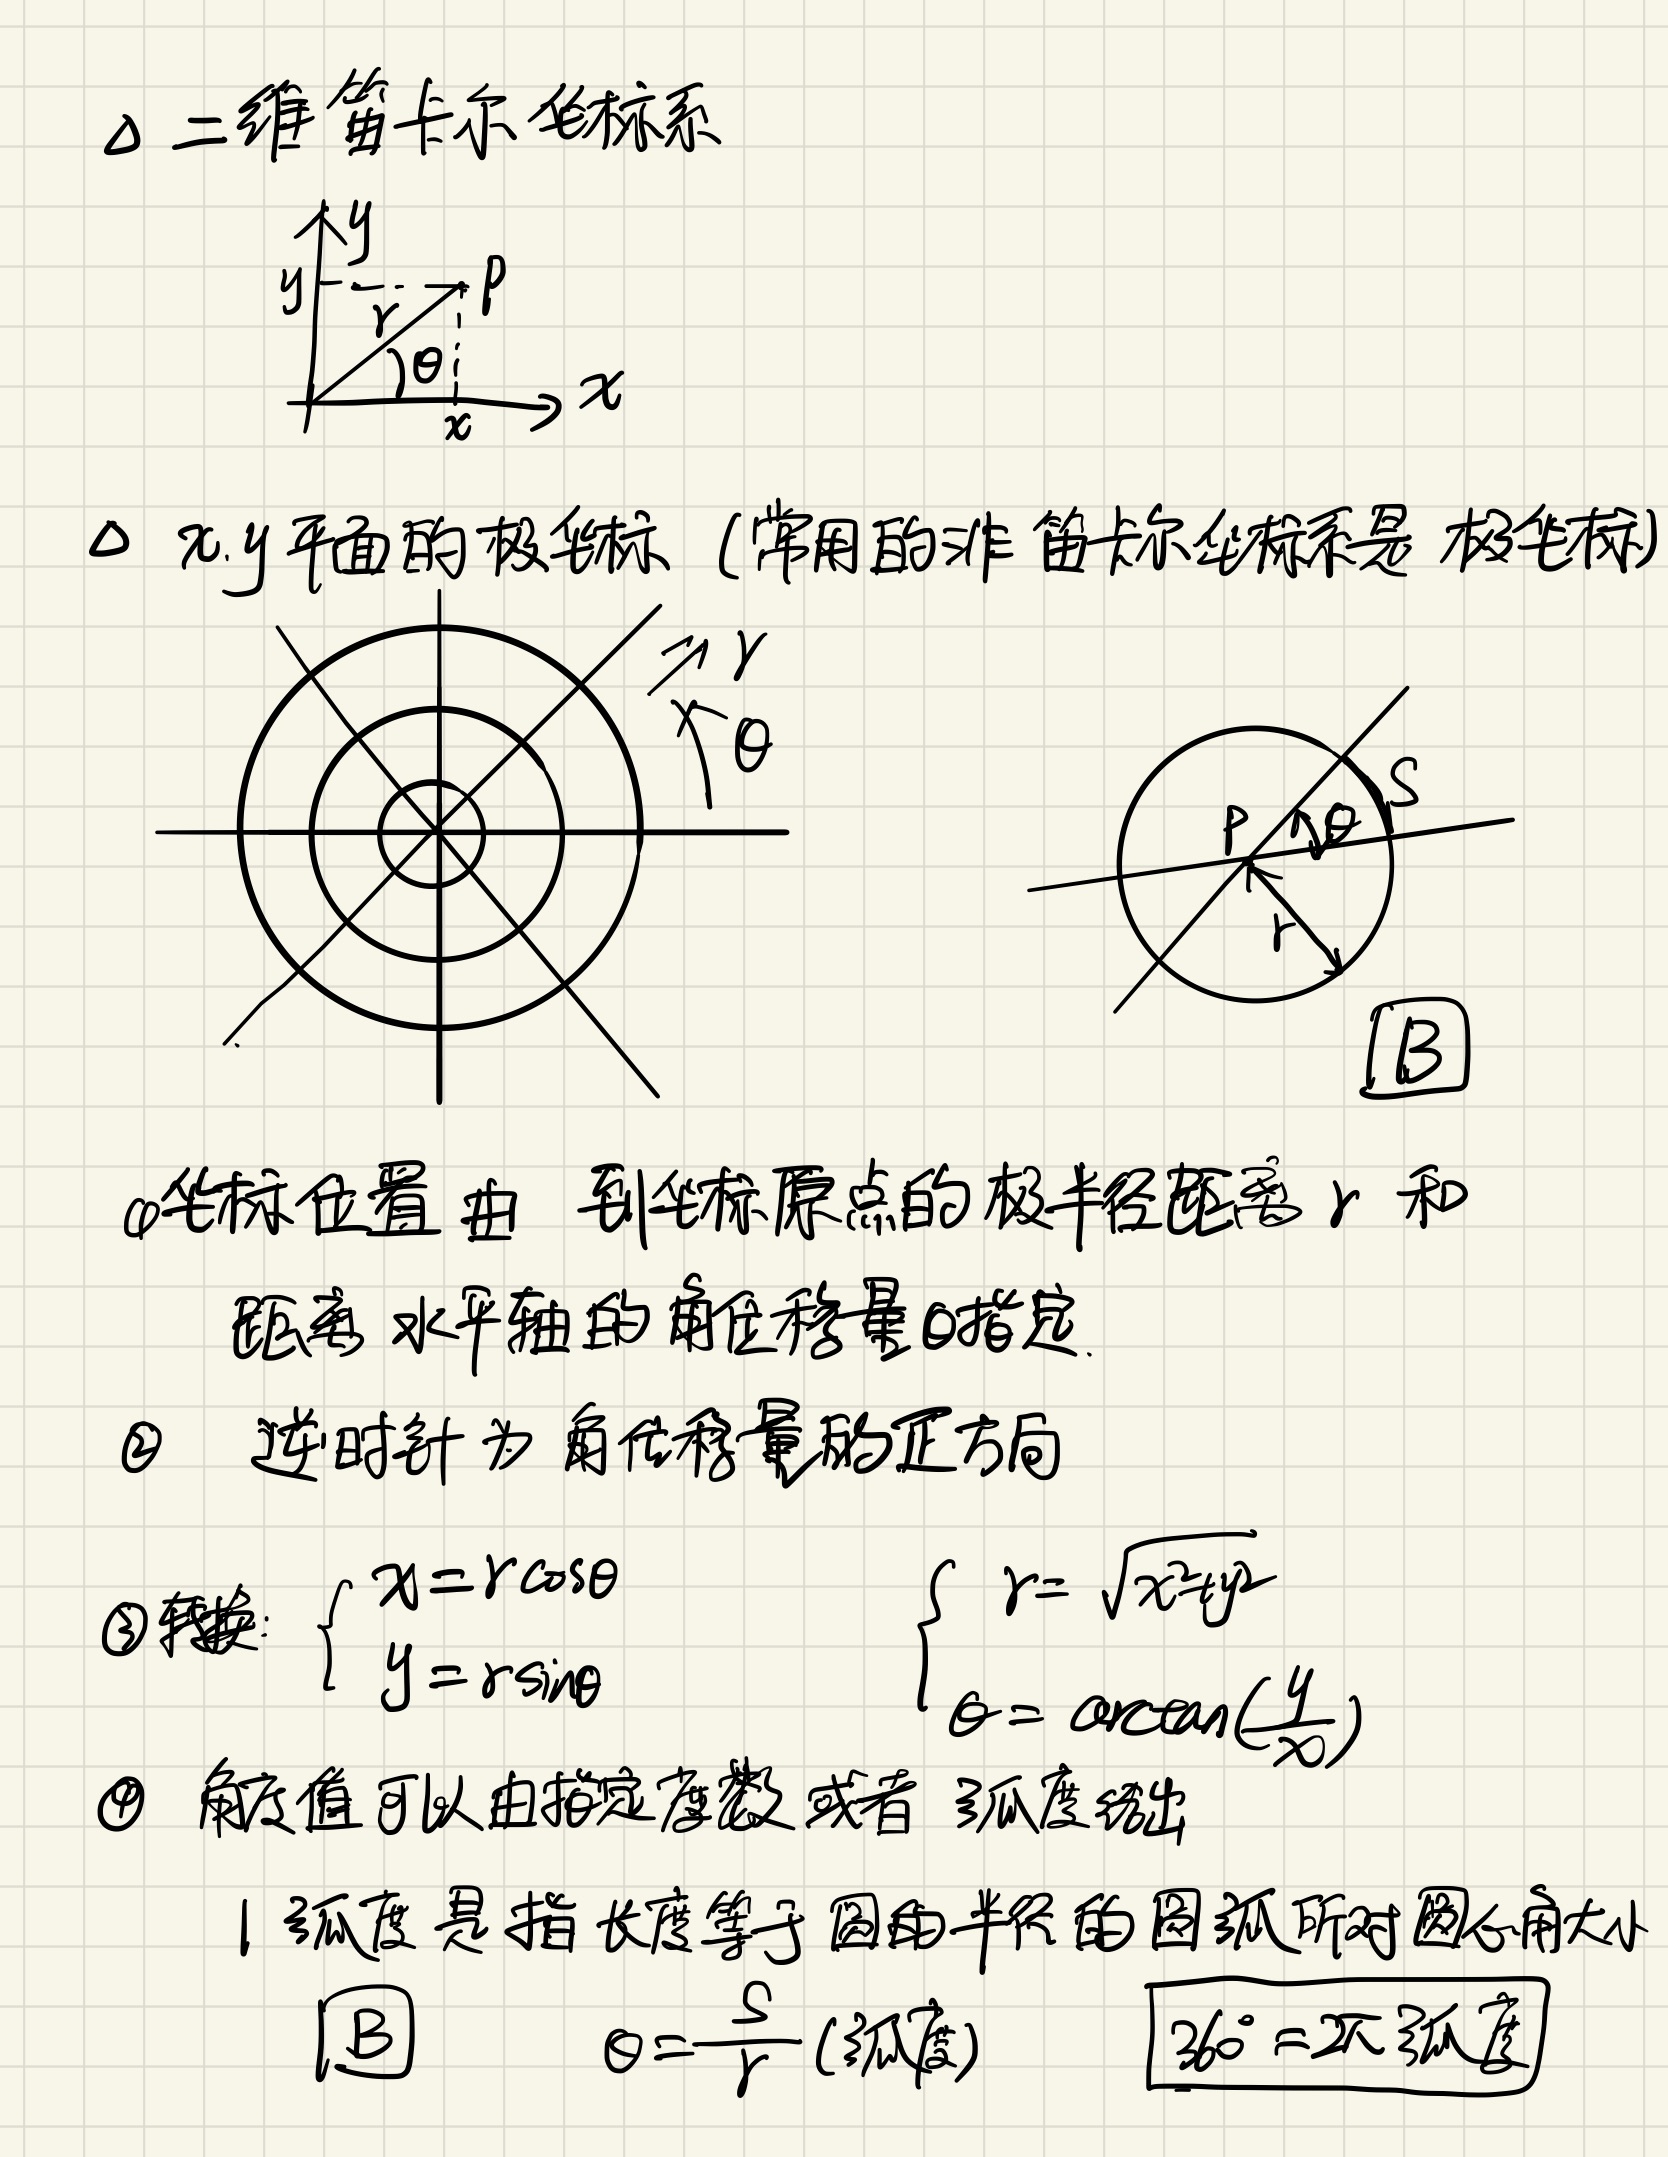 △ 二维笛卡尔坐标系
y
y
P
r
θ
x
x
△ x.y平面的极坐标 (常用的非笛卡尔坐标系是 极坐标)
r
θ
S
P
θ
r
B
① 坐标位置由 到坐标原点的极半径距离 r 和
距离水平轴的角位移量θ指定.
② 逆时针为角位移量的正方向
③ 转换: { x = r cosθ { r = √(x²+y²)
y = r sinθ θ = arctan(y/x)
④ 角度值可以由指定度数或者 弧度给出
1 弧度是指长度等于圆的半径的圆弧所对圆心角大小
B θ = S/r (弧度) 360° = 2π 弧度